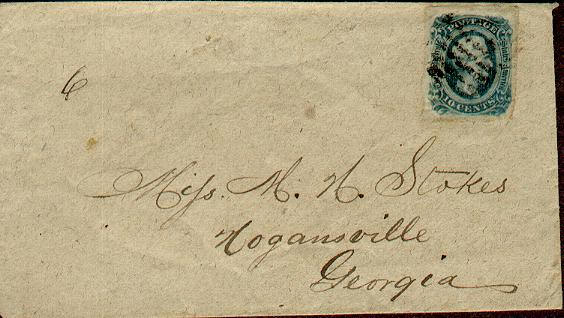 POSTAGE
10 CENTS
6
Miss. M. N. Stokes
Hogansville
Georgia